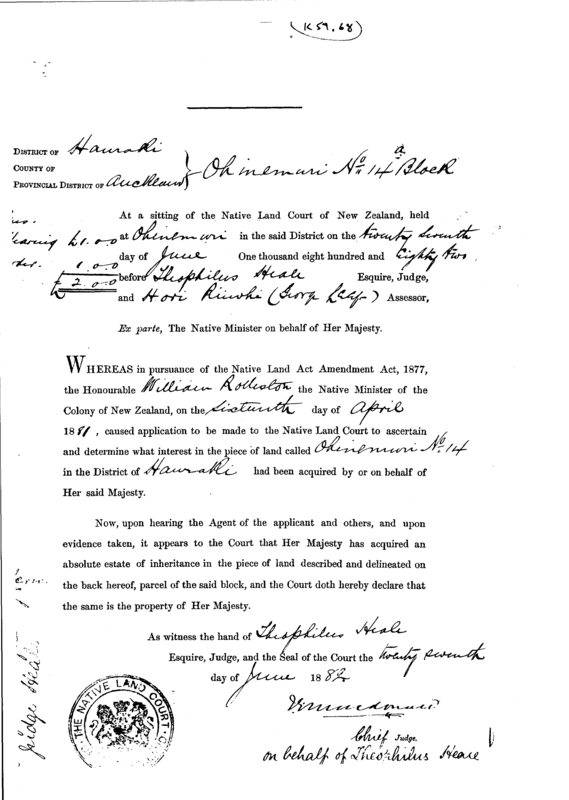 (K 59.68)
DISTRICT OF Hauraki
COUNTY OF
PROVINCIAL DISTRICT OF Auckland
Ohinemuri No 14a Block
At a sitting of the Native Land Court of New Zealand, held
at Ohinemuri in the said District on the twenty seventh
day of June One thousand eight hundred and Eighty two
before Theophilus Heale Esquire, Judge,
and Hori Riwhi (George ) Assessor,
hearing £1.0.0
1.0.0
£ 2.0.0
Ex parte, The Native Minister on behalf of Her Majesty.
WHEREAS in pursuance of the Native Land Act Amendment Act, 1877,
the Honourable William Rolleston the Native Minister of the
Colony of New Zealand, on the Sixteenth day of April
1881, caused application to be made to the Native Land Court to ascertain
and determine what interest in the piece of land called Ohinemuri No 14
in the District of Hauraki had been acquired by or on behalf of
Her said Majesty.
Now, upon hearing the Agent of the applicant and others, and upon
evidence taken, it appears to the Court that Her Majesty has acquired an
absolute estate of inheritance in the piece of land described and delineated on
the back hereof, parcel of the said block, and the Court doth hereby declare that
the same is the property of Her Majesty.
As witness the hand of Theophilus Heale
Esquire, Judge, and the Seal of the Court the twenty seventh
day of June 1882
Chief Judge.
on behalf of Theophilus Heale
THE NATIVE LAND COURT
Judge Heale